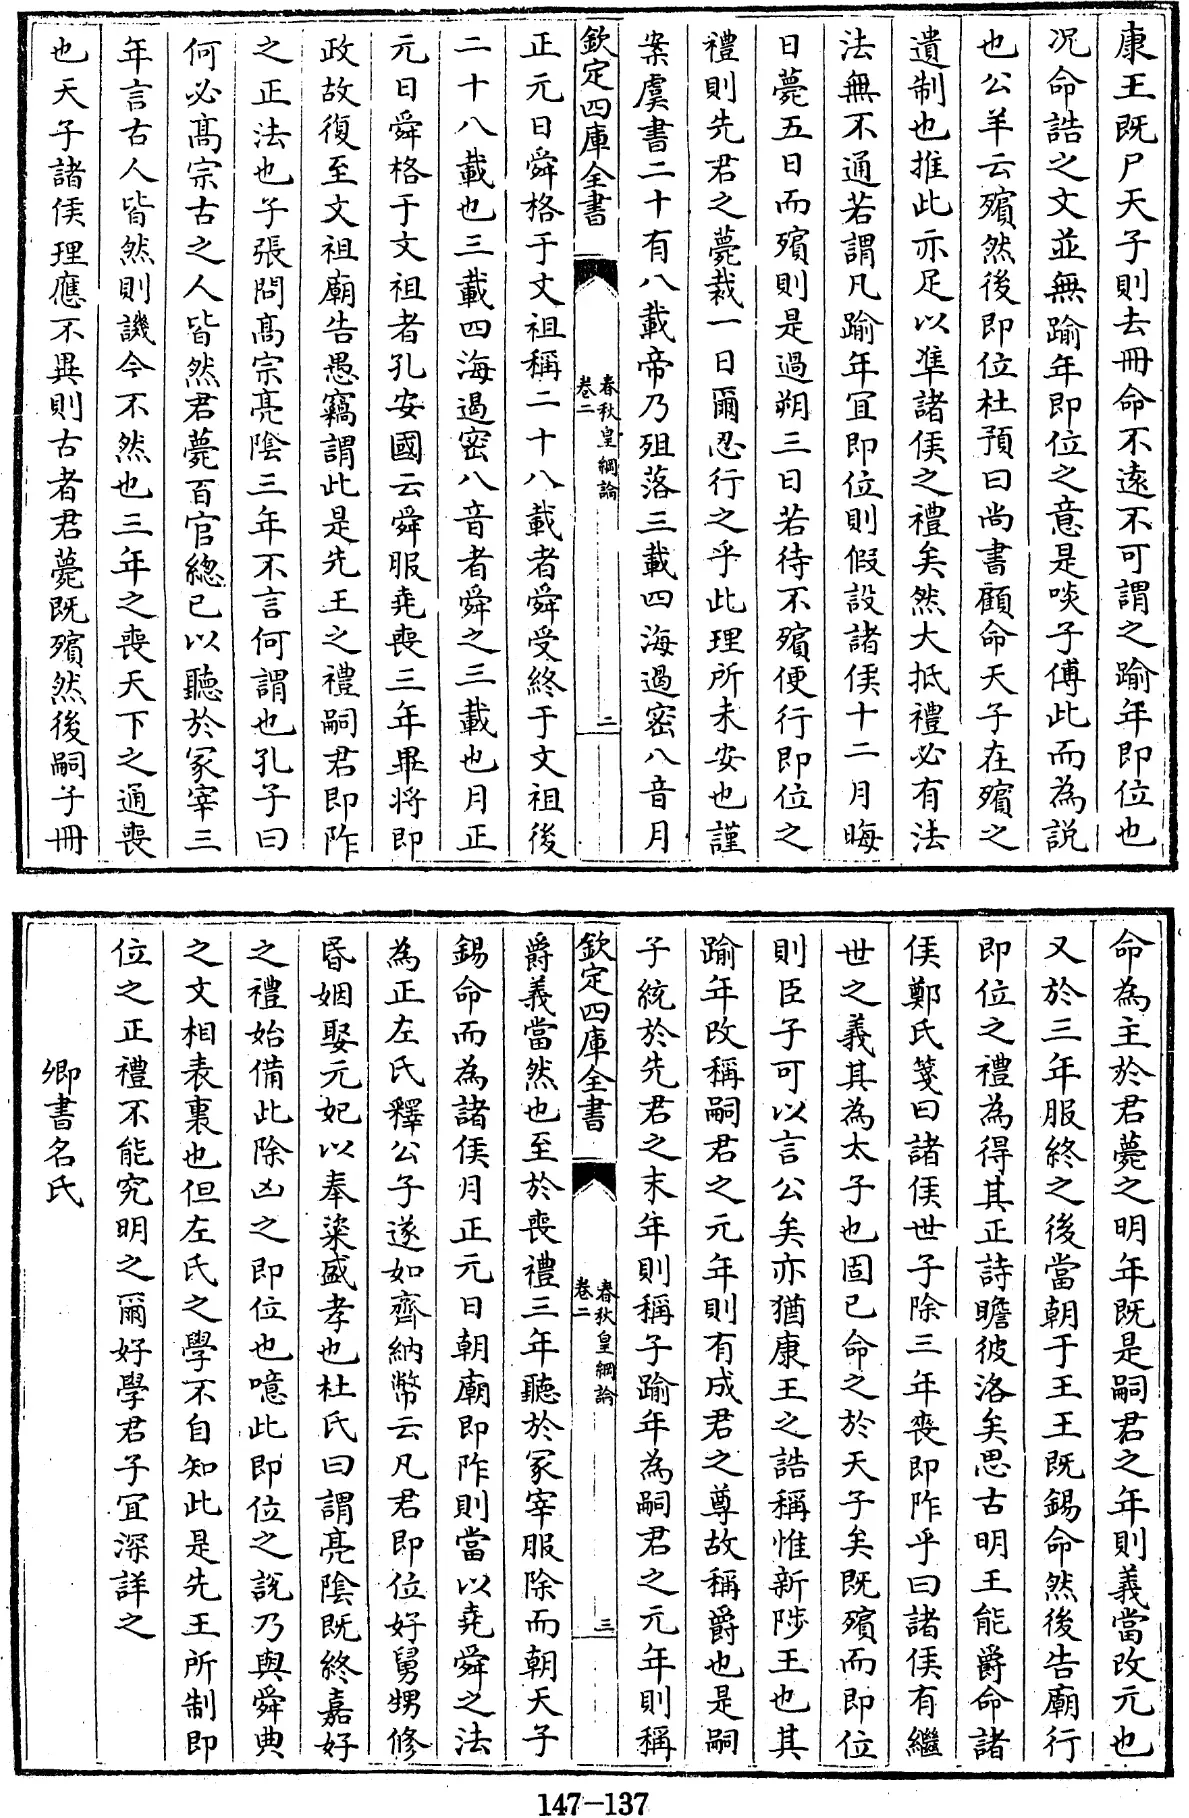 康王既尸天子則去冊命不遠不可謂之踰年即位也
况命誥之文並無踰年即位之意是啖子傅此而為説
也公羊云殯然後即位杜預曰尚書顧命天子在殯之
遺制也推此亦足以準諸侯之禮矣然大抵禮必有法
法無不通若謂凡踰年宜即位則假設諸侯十二月晦
日薨五日而殯則是過朔三日若待不殯便行即位之
禮則先君之薨裁一日爾忍行之乎此理所未安也謹
案虞書二十有八載帝乃殂落三載四海遏密八音月
欽定四庫全書
春秋皇綱論
卷二
二
正元日舜格于文祖稱二十八載者舜受終于文祖後
二十八載也三載四海遏密八音者舜之三載也月正
元日舜格于文祖者孔安國云舜服堯喪三年畢将即
政故復至文祖廟告愚竊謂此是先王之禮嗣君即阼
之正法也子張問高宗亮陰三年不言何謂也孔子曰
何必髙宗古之人皆然君薨百官總已以聽於冢宰三
年言古人皆然則譏今不然也三年之喪天下之通喪
也天子諸侯理應不異則古者君薨既殯然後嗣子冊
命為主於君薨之明年既是嗣君之年則義當改元也
又於三年服終之後當朝于王王既錫命然後告廟行
即位之禮為得其正詩瞻彼洛矣思古明王能爵命諸
侯鄭氏箋曰諸侯世子除三年喪即阼乎曰諸侯有繼
世之義其為太子也固已命之於天子矣既殯而即位
則臣子可以言公矣亦猶康王之誥稱惟新陟王也其
踰年改稱嗣君之元年則有成君之尊故稱爵也是嗣
子統於先君之末年則稱子踰年為嗣君之元年則稱
欽定四庫全書
春秋皇綱論
卷二
三
爵義當然也至於喪禮三年聽於冢宰服除而朝天子
錫命而為諸侯月正元日朝廟即阼則當以堯舜之法
為正左氏釋公子遂如齊納幣云凡君即位好舅甥修
昏姻娶元妃以奉粢盛孝也杜氏曰謂亮陰既終嘉好
之禮始備此除凶之即位也噫此即位之説乃與舜典
之文相表裏也但左氏之學不自知此是先王所制即
位之正禮不能究明之爾好學君子宜深詳之
卿書名氏
147—137